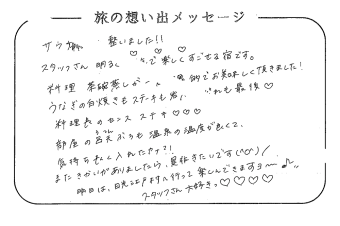 旅の想い出メッセージ
サウナ 整いました!!
スタッフさん 明るく で楽しくすごせる宿です。
料理 茶碗蒸しが一 でお美味しく頂きました!
うなぎの白焼きもステーキも 最後♡
料理長のセンス ステキ♡♡♡
部屋の ふろも温泉の温度が良くて、
気持ち良く入れたヤァ?!
またきかいがありましたら、是非きたいです(^o^)/
明日は、日光江戸村へ行って楽しんできますヨ〜♪
スタッフさん大好きっ♡♡♡♡